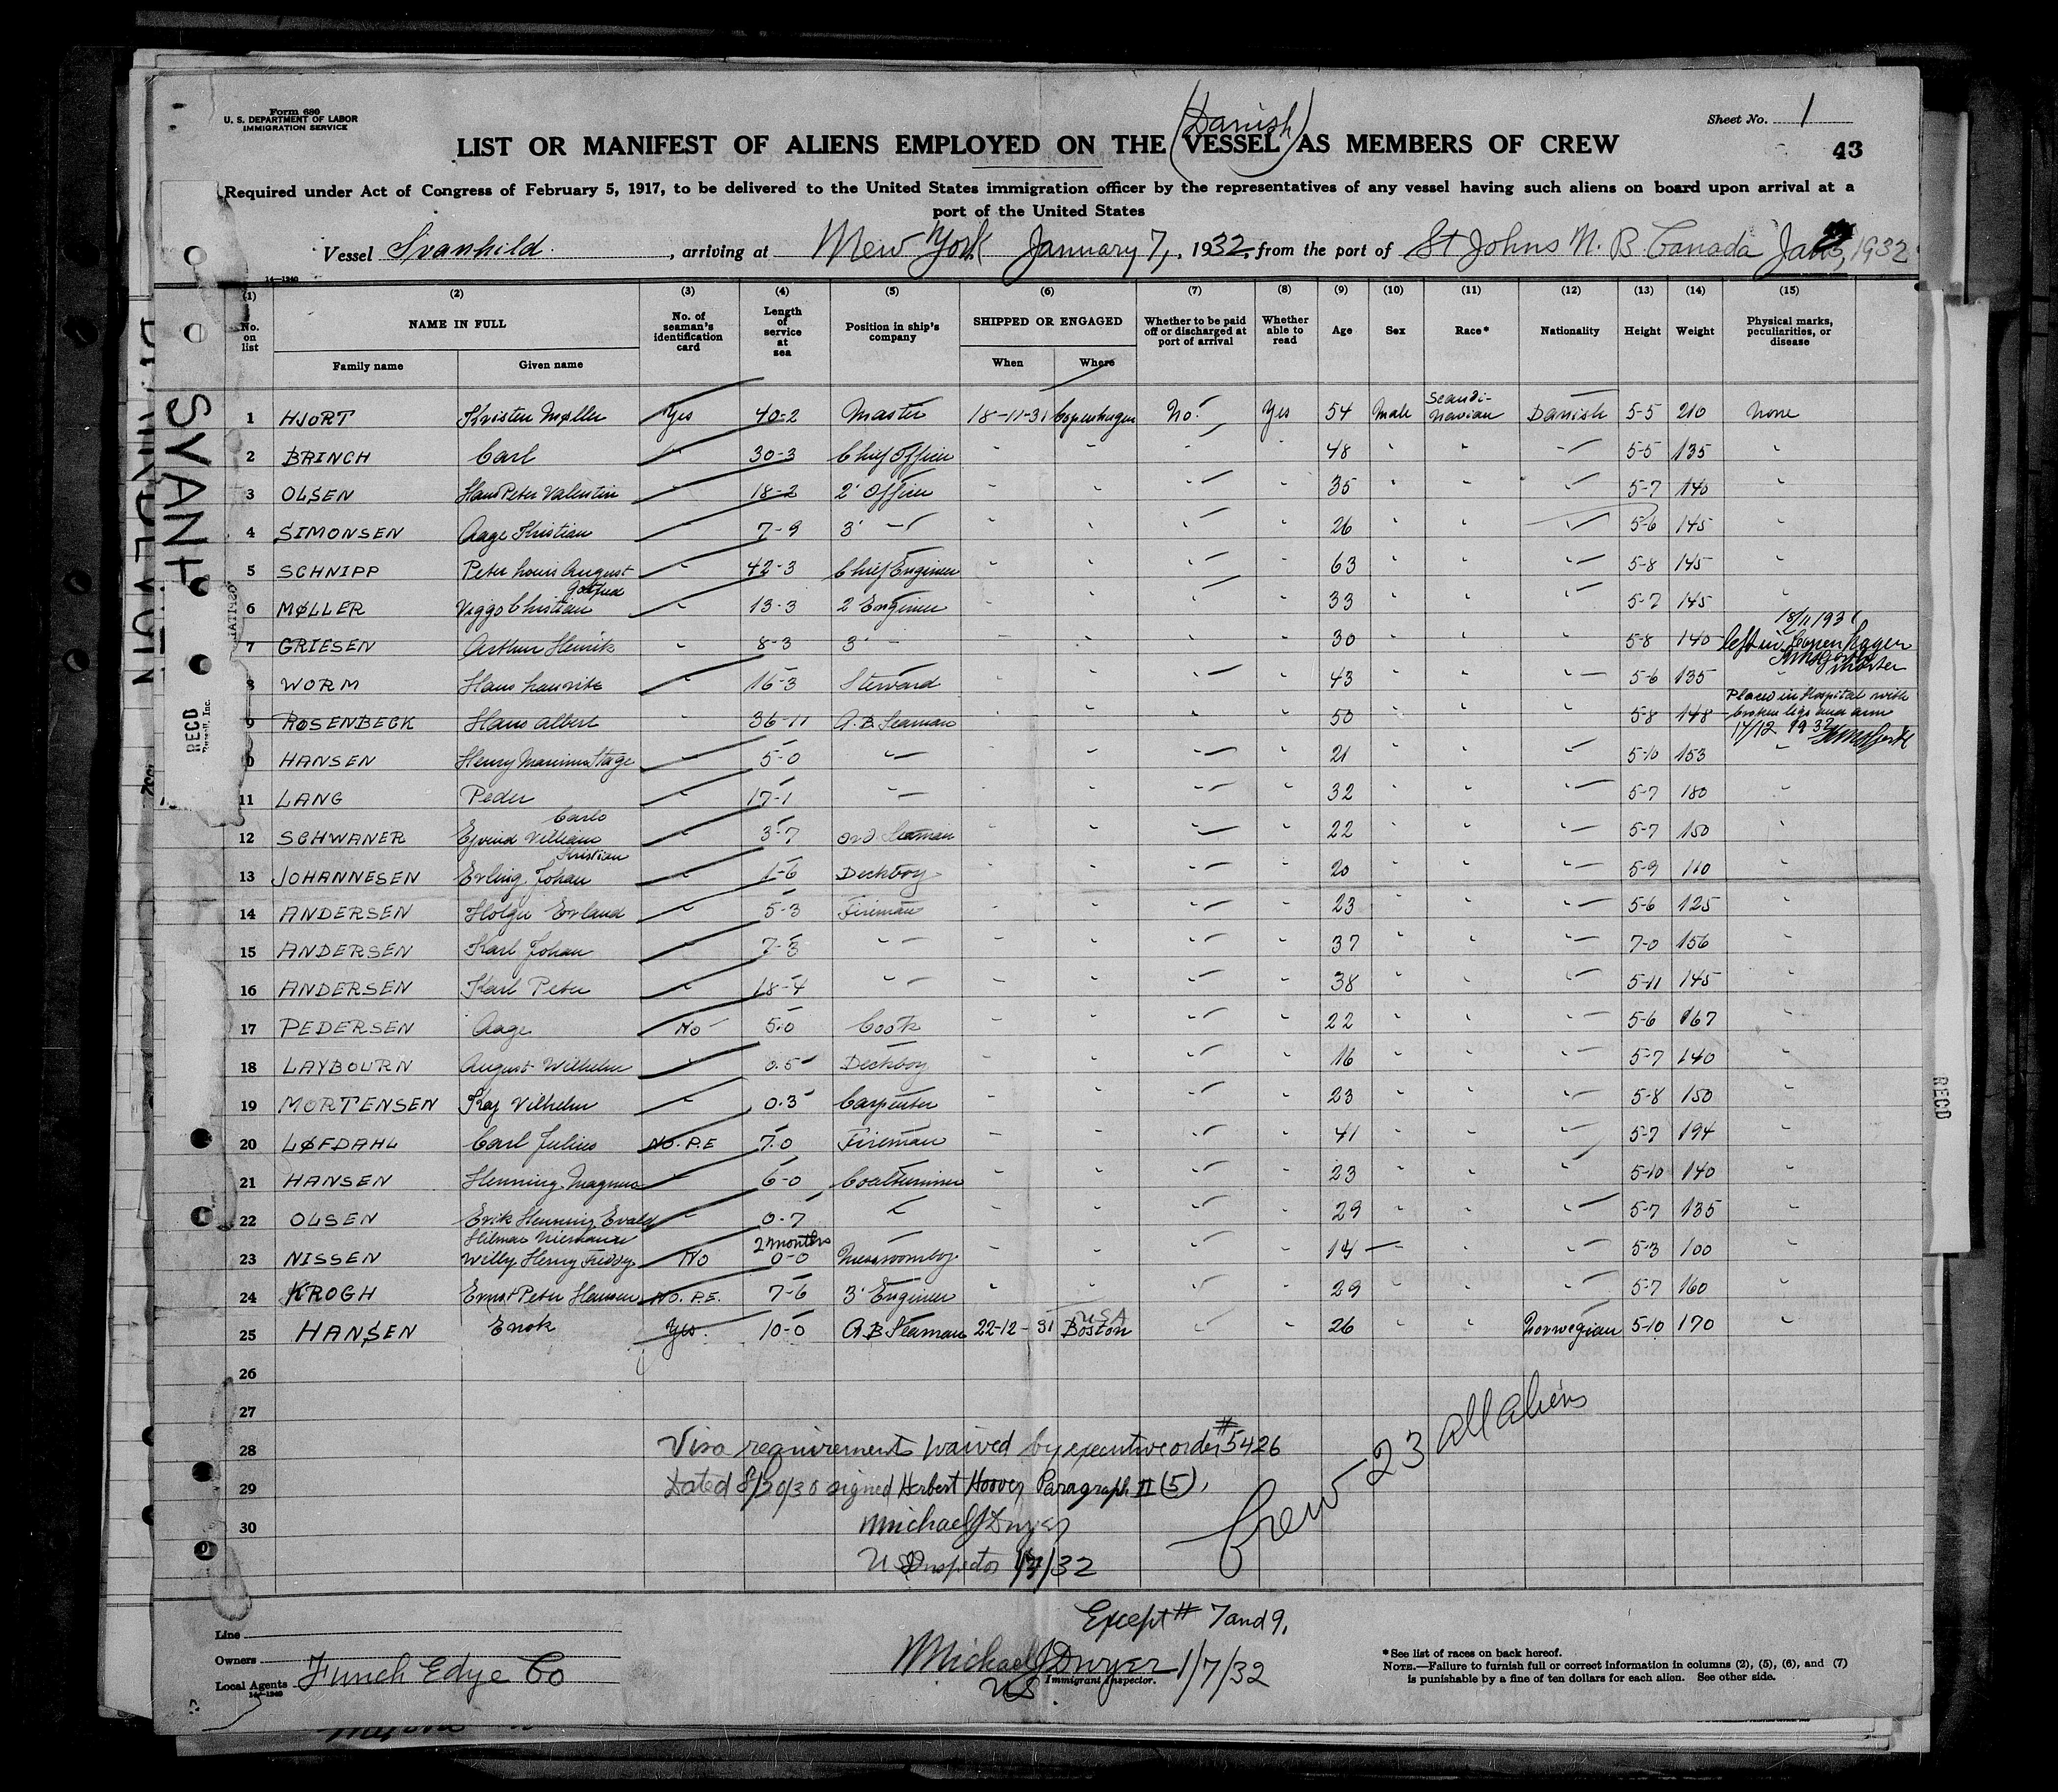 Form 680
U. S. DEPARTMENT OF LABOR
IMMIGRATION SERVICE
Sheet No. 1
(Danish)
LIST OR MANIFEST OF ALIENS EMPLOYED ON THE VESSEL AS MEMBERS OF CREW
43
Required under Act of Congress of February 5, 1917, to be delivered to the United States immigration officer by the representatives of any vessel having such aliens on board upon arrival at a
port of the United States
Vessel Svanhild, arriving at New York January 7, 1932, from the port of St Johns N. B Canada Jan 1932
14—1240
(1) (2) (3) (4) (5) (6) (7) (8) (9) (10) (11) (12) (13) (14) (15)
No. on list
NAME IN FULL
Family name
Given name
No. of seaman's identification card
Length of service at sea
Position in ship's company
SHIPPED OR ENGAGED
When
Where
Whether to be paid off or discharged at port of arrival
Whether able to read
Age
Sex
Race*
Nationality
Height
Weight
Physical marks, peculiarities, or disease
1 HJORT Kristen Møller Yes 40-2 Master 18-11-31 Copenhagen No. Yes 54 Male Scandinavian Danish 5-5 210 None
2 BRINCH Carl " 30-3 Chief Officer " " " " 48 " " " 5-5 135 "
3 OLSEN Hans Peter Valentin " 18-2 2' Officer " " " " 35 " " " 5-7 140 "
4 SIMONSEN Aage Kristian " 7-9 3' — " " " " 26 " " " 5-6 145 "
5 SCHNIPP Peter Louis August " 42-3 Chief Engineer " " " " 63 " " " 5-8 145 "
6 MØLLER Viggo Christian Gotfred " 13-3 2 Engineer " " " " 33 " " " 5-7 145 "
7 GRIESEN Arthur Henrik " 8-3 3' — " " " " 30 " " " 5-8 140 18/11 1931 left in Copenhagen Master
8 WORM Hans Lauritz " 16-3 Steward " " " " 43 " " " 5-6 135 "
9 ROSENBECK Hans Albert " 36-11 A.B. Seaman " " " " 50 " " " 5-8 148 Placed in Hospital with broken legs and arm 17/12 1932
10 HANSEN Henry Marinus Hage " 5-0 " " " " " 21 " " " 5-10 153 "
11 LANG Peder " 17-1 " " " " " 32 " " " 5-7 180 "
12 SCHWANER Ejvind Villiam Carlo " 3-7 Ord Seaman " " " " 22 " " " 5-7 150 "
13 JOHANNESEN Erling Johan Kristian " 1-6 Deckboy " " " " 20 " " " 5-9 110 "
14 ANDERSEN Holger Erland " 5-3 Fireman " " " " 23 " " " 5-6 125 "
15 ANDERSEN Karl Johan " 7-3 " " " " " 37 " " " 7-0 156 "
16 ANDERSEN Karl Peter " 18-4 " " " " " 38 " " " 5-11 145 "
17 PEDERSEN Aage No 5.0 Cook " " " " 22 " " " 5-6 167 "
18 LAYBOURN August Wilhelm " 0.5 Deckboy " " " " 16 " " " 5-7 140 "
19 MORTENSEN Kaj Vilhelm " 0.3 Carpenter " " " " 23 " " " 5-8 150 "
20 LØFDAHL Carl Julius NO. P.E 7.0 Fireman " " " " 41 " " " 5-7 194 "
21 HANSEN Henning Magnus " 6-0 Coaltrimmer " " " " 23 " " " 5-10 140 "
22 OLSEN Erik Henning Evald " 0-7 " " " " " 29 " " " 5-7 135 "
23 NISSEN Willy Henry Freddy No 2 months 0-0 Messroomboy " " " " 14 — " " 5-3 100 "
24 KROGH Ernst Peter Hansen NO. P.E. 7-6 3' Engineer " " " " 29 " " " 5-7 160 "
25 HANSEN Enok Yes. 10-0 A B Seaman 22-12-31 Boston USA " " 26 " " Norwegian 5-10 170 "
26
27
28
29
30
Visa requirements waived by executive order #5426
Dated 8/20/30 signed Herbert Hoover Paragraph II (5).
Michael J Dwyer
US Inspector 1/7/32
Crew 23 all aliens
Except # 7 and 9.
Michael J Dwyer 1/7/32
US Immigrant Inspector.
Line
Owners
Local Agents Funch Edye Co
14—1240
*See list of races on back hereof.
NOTE.—Failure to furnish full or correct information in columns (2), (5), (6), and (7)
is punishable by a fine of ten dollars for each alien. See other side.
SVANH
RECD
RECD